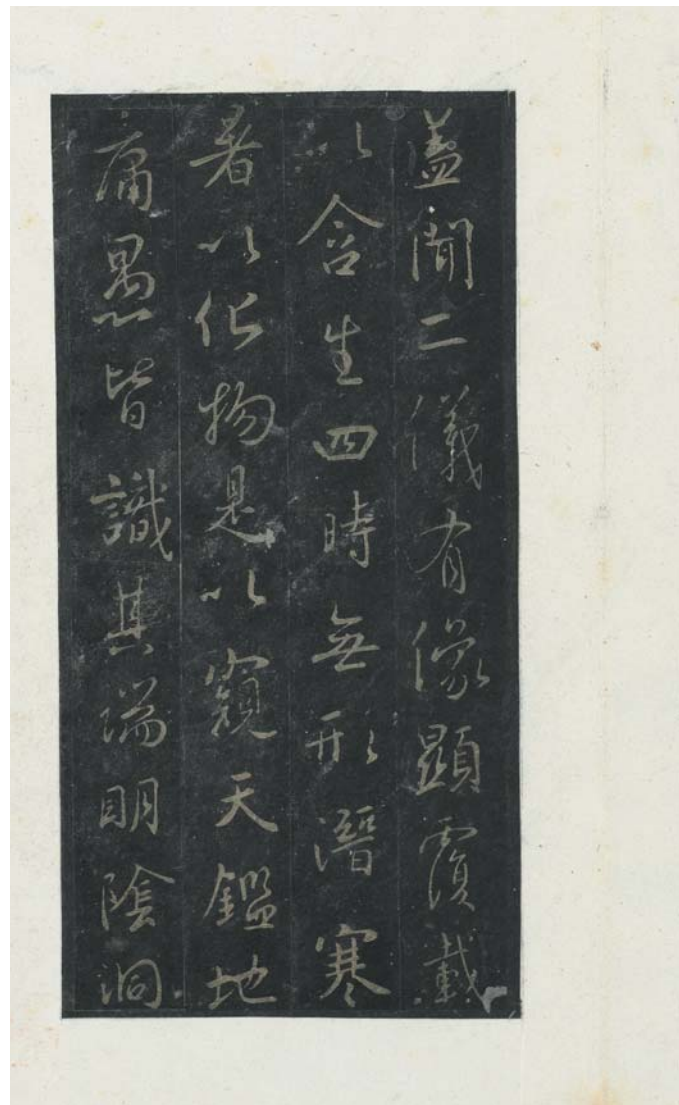 蓋聞二儀有像顯覆載
以含生四時無形潛寒
暑以化物是以窺天鑑地
庸愚皆識其端明陰洞